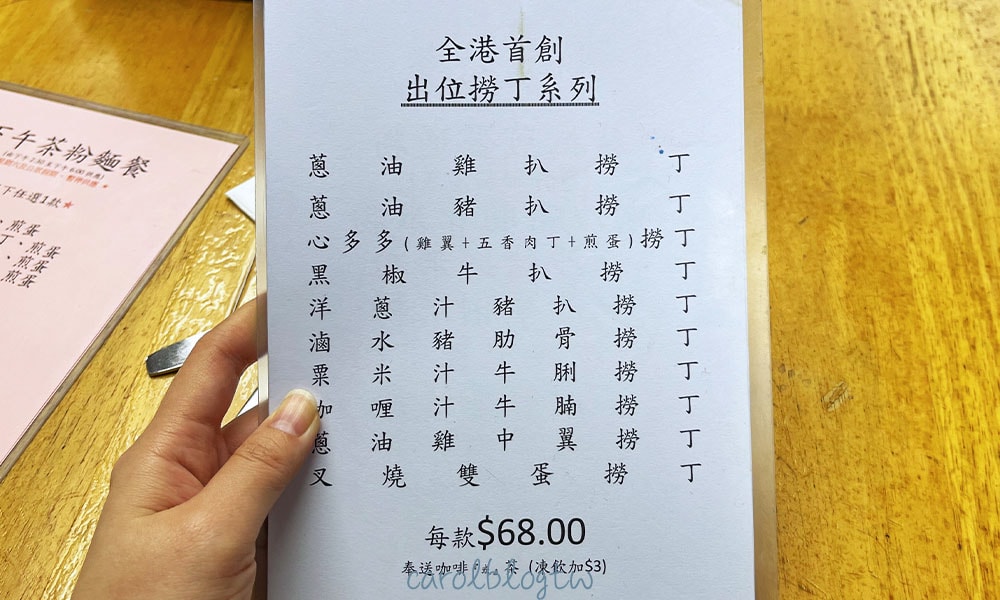 全港首創
出位撈丁系列
蔥油雞扒撈丁
蔥油豬扒撈丁
心多多(雞翼+五香肉丁+煎蛋)撈丁
黑椒牛扒撈丁
洋蔥汁豬扒撈丁
滷水豬肋骨撈丁
粟米汁牛脷撈丁
咖喱汁牛腩撈丁
蔥油雞中翼撈丁
叉燒雙蛋撈丁
每款$68.00
奉送咖啡或茶 (凍飲加$3)
carolblogtw
下午茶粉麵餐
下任選1款★
、煎蛋
丁、煎蛋
、煎蛋
煎蛋